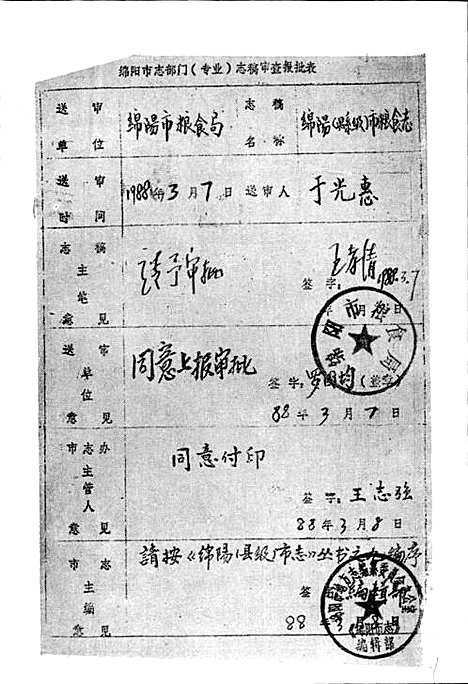 绵阳市志部门(专业)志稿审查报批表
送审单位 绵陽市粮食局 志稿名称 绵陽(县级)市粮食志
送审时间 1988年3月7日 送审人 于光惠
志稿主笔意见 请予审批
签字: 1988.3.7
年 月 日
送审单位意见 同意上报审批
签字: 罗国均 (盖字)
88年3月7日
市志办主管人意见 同意付印
签字: 王志强
88年3月8日
市志主编意见 請按《绵陽(县级)市志》丛书之 编序
签
88年
市粮食局
《绵阳市志》
编辑部